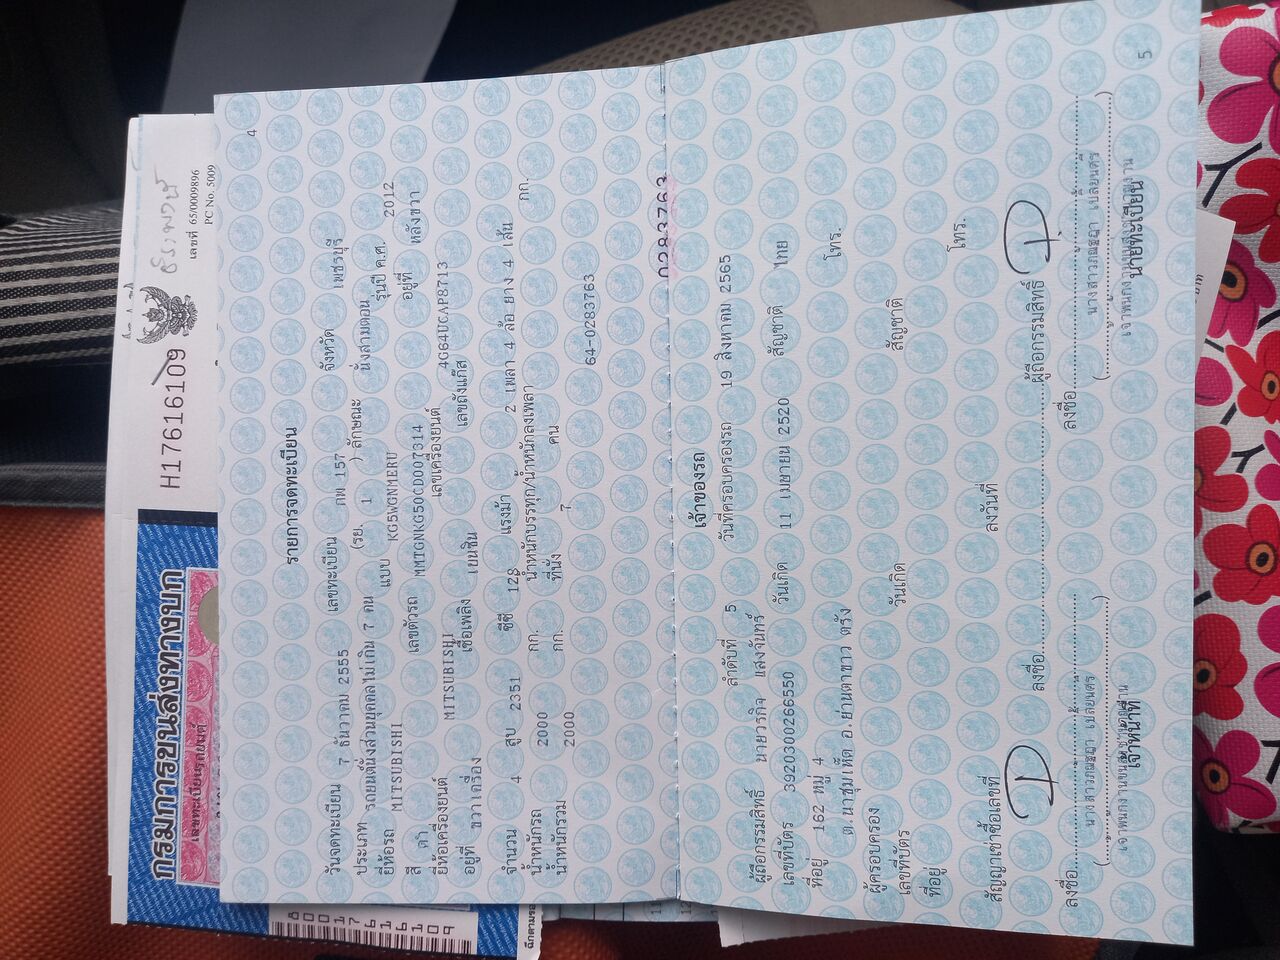 กรมการขนส่งทางบก
เลขทะเบียนรถยนต์
H17616109
เลขที่ 65/0009896
PC No. 5009
4
รายการจดทะเบียน
วันจดทะเบียน 7 ธันวาคม 2555 เลขทะเบียน กพ 157 จังหวัด เพชรบุรี
ประเภท รถยนต์นั่งส่วนบุคคลไม่เกิน 7 คน (รย. 1 ) ลักษณะ นั่งสามตอน
ยี่ห้อรถ MITSUBISHI แบบ KG5WGNMERU รุ่นปี ค.ศ. 2012
สี ดำ เลขตัวรถ MMTGNKG50CD007314 อยู่ที่ หลังขวา
ยี่ห้อเครื่องยนต์ MITSUBISHI เลขเครื่องยนต์ 4G64UCAP8713
อยู่ที่ ขวาเครื่อง เชื้อเพลิง เบนซิน เลขถังแก๊ส
จำนวน 4 สูบ 2351 ซีซี 128 แรงม้า 2 เพลา 4 ล้อ ยาง 4 เส้น
น้ำหนักรถ 2000 กก. น้ำหนักบรรทุก/น้ำหนักลงเพลา กก.
น้ำหนักรวม 2000 กก. ที่นั่ง 7 คน
64-0283763
0283763
เจ้าของรถ
ลำดับที่ 5 วันที่ครอบครองรถ 19 สิงหาคม 2565
ผู้ถือกรรมสิทธิ์ นายวรกิจ แสงจันทร์
เลขที่บัตร 3920300266550 วันเกิด 11 เมษายน 2520 สัญชาติ ไทย
ที่อยู่ 162 หมู่ 4
ต.นาชุมเห็ด อ.ย่านตาขาว ตรัง โทร.
ผู้ครอบครอง
เลขที่บัตร วันเกิด สัญชาติ
ที่อยู่
โทร.
สัญญาเช่าซื้อเลขที่ ลงวันที่
ลงชื่อ ผู้ถือกรรมสิทธิ์
ลงชื่อ ลงชื่อ
เจ้าหน้าที่ นายทะเบียน
5